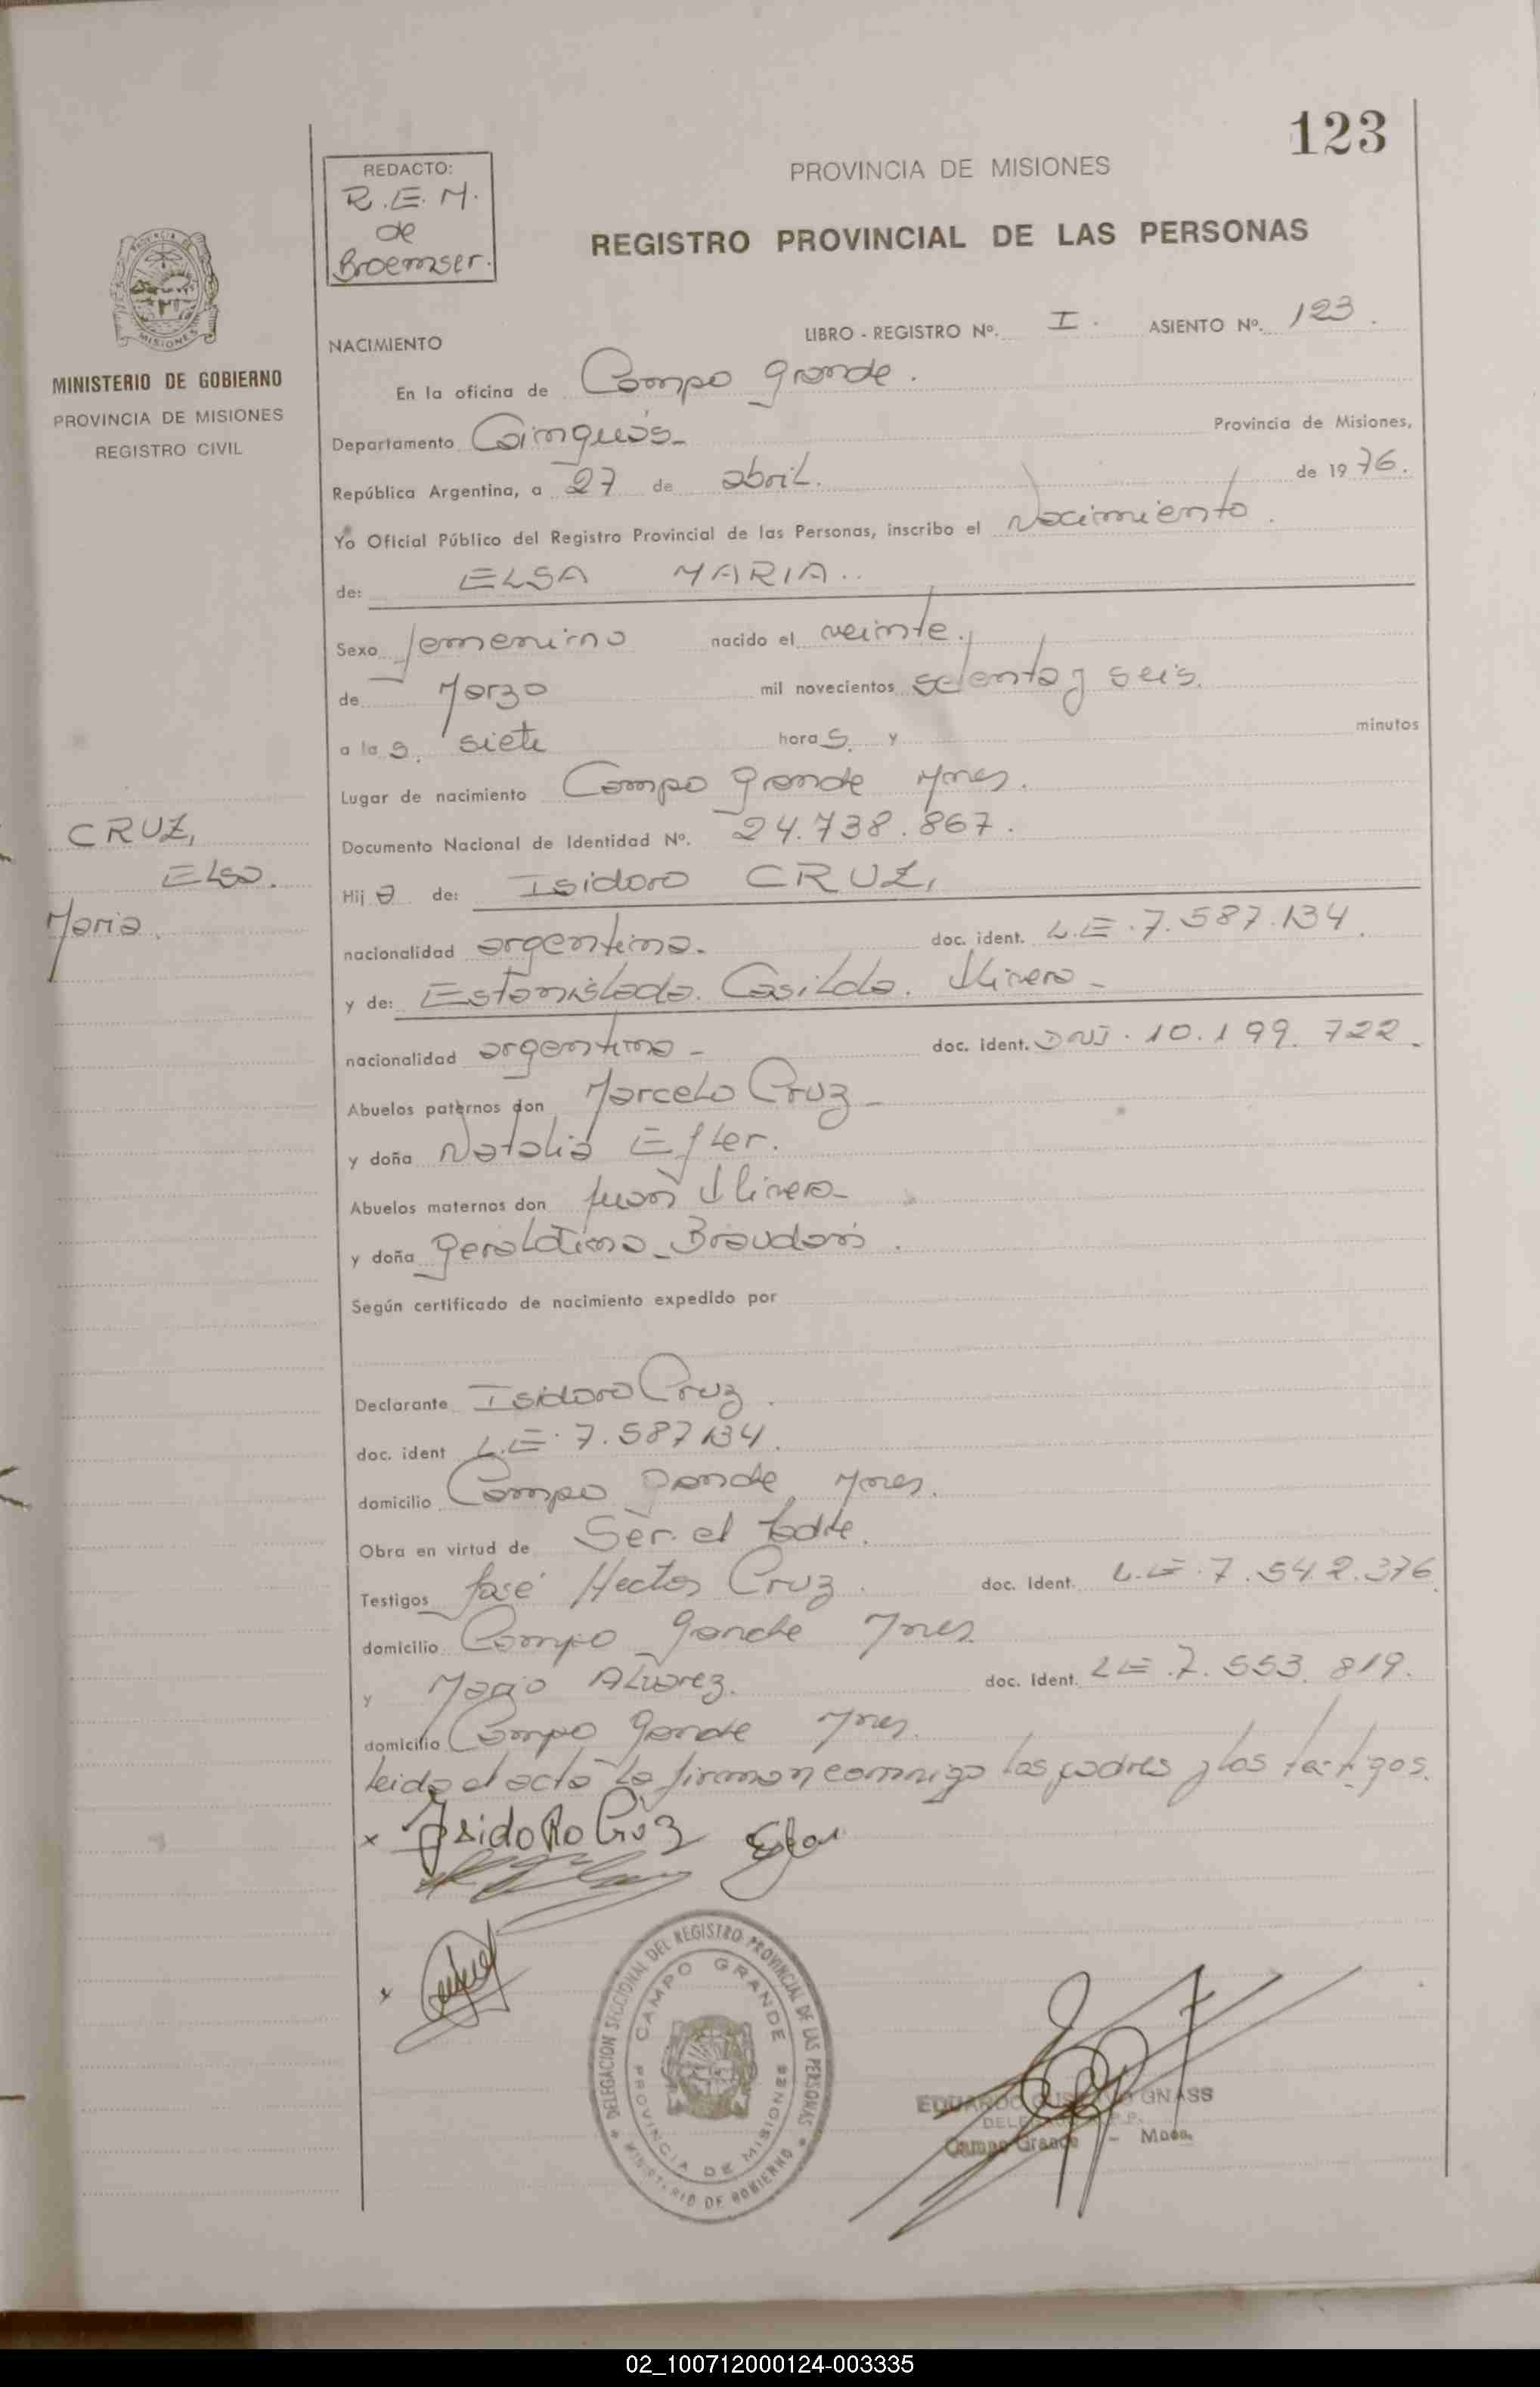 123
REDACTO:
R.E.M.
de
Broemser.
PROVINCIA DE MISIONES
REGISTRO PROVINCIAL DE LAS PERSONAS
MINISTERIO DE GOBIERNO
PROVINCIA DE MISIONES
REGISTRO CIVIL
CRUZ,
Elsa.
Maria.
NACIMIENTO
LIBRO - REGISTRO Nº. I. ASIENTO Nº. 123.
En la oficina de Campo grande.
Departamento Cainguás- Provincia de Misiones,
República Argentina, a 27 de abril. de 19 76.
Yo Oficial Público del Registro Provincial de las Personas, inscribo el Nacimiento.
de: ELSA MARIA..
Sexo femenino nacido el veinte.
de Marzo mil novecientos setenta y seis.
a la s. siete hora s. y minutos
Lugar de nacimiento Campo grande Mnes.
Documento Nacional de Identidad Nº. 24.738.867.
Hij a de: Isidoro CRUZ,
nacionalidad argentina. doc. ident. L.E.7.587.134.
y de: Estanislada. Casilda.
nacionalidad argentina - doc. ident. DNI. 10.199.722.
Abuelos paternos don Marcelo Cruz-
y doña Natalia
Abuelos maternos don Juan
y doña geraldina
Según certificado de nacimiento expedido por
Declarante Isidoro Cruz.
doc. ident L.E. 7.587134.
domicilio Campo grande Mnes.
Obra en virtud de Ser. el Padre.
Testigos José Hector Cruz. doc. Ident. L.E.7.542.376.
domicilio Campo grande Mnes.
y Mario Alvarez. doc. Ident. LE.7.553.819.
domicilio Campo grande Mnes.
leida el acta la firman conmigo los padres y los testigos.
x Isidoro Cruz
x
DELEGACION SECCIONAL DEL REGISTRO PROVINCIAL DE LAS PERSONAS
CAMPO GRANDE
PROVINCIA DE MISIONES
MINISTERIO DE GOBIERNO
EDUARDO GNASS
Campo Grande - Mnes.
02_100712000124-003335